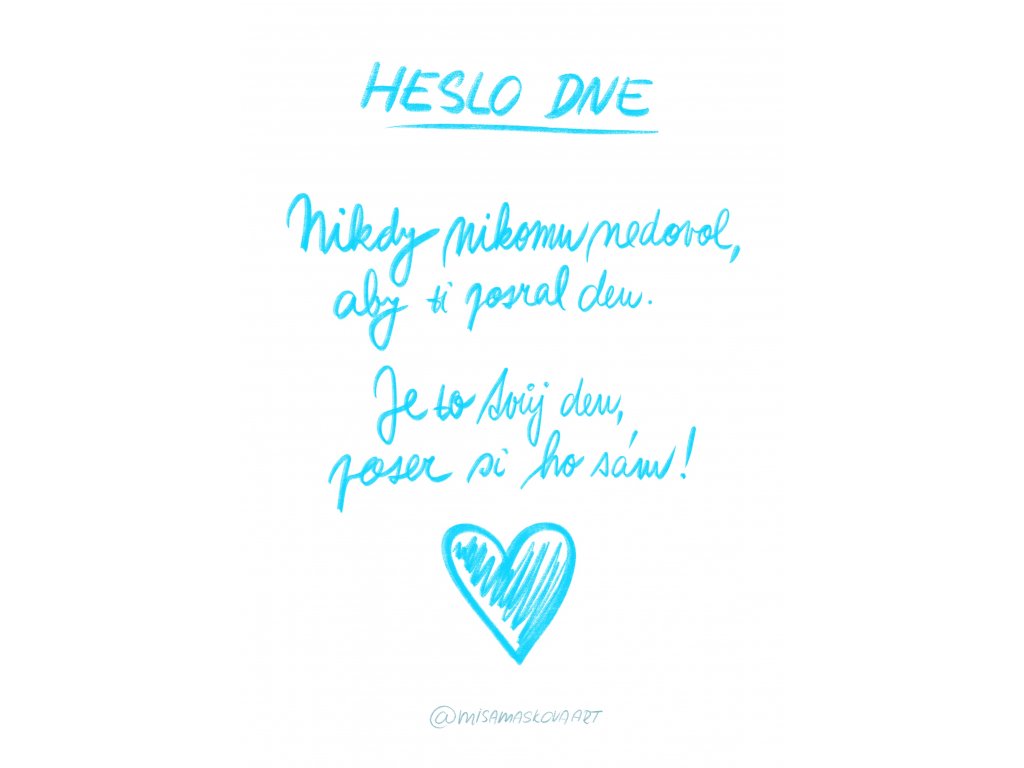 HESLO DNE
Nikdy nikomu nedovol,
aby ti posral den.
Je to tvůj den,
poser si ho sám!
@MISAMASKOVAART